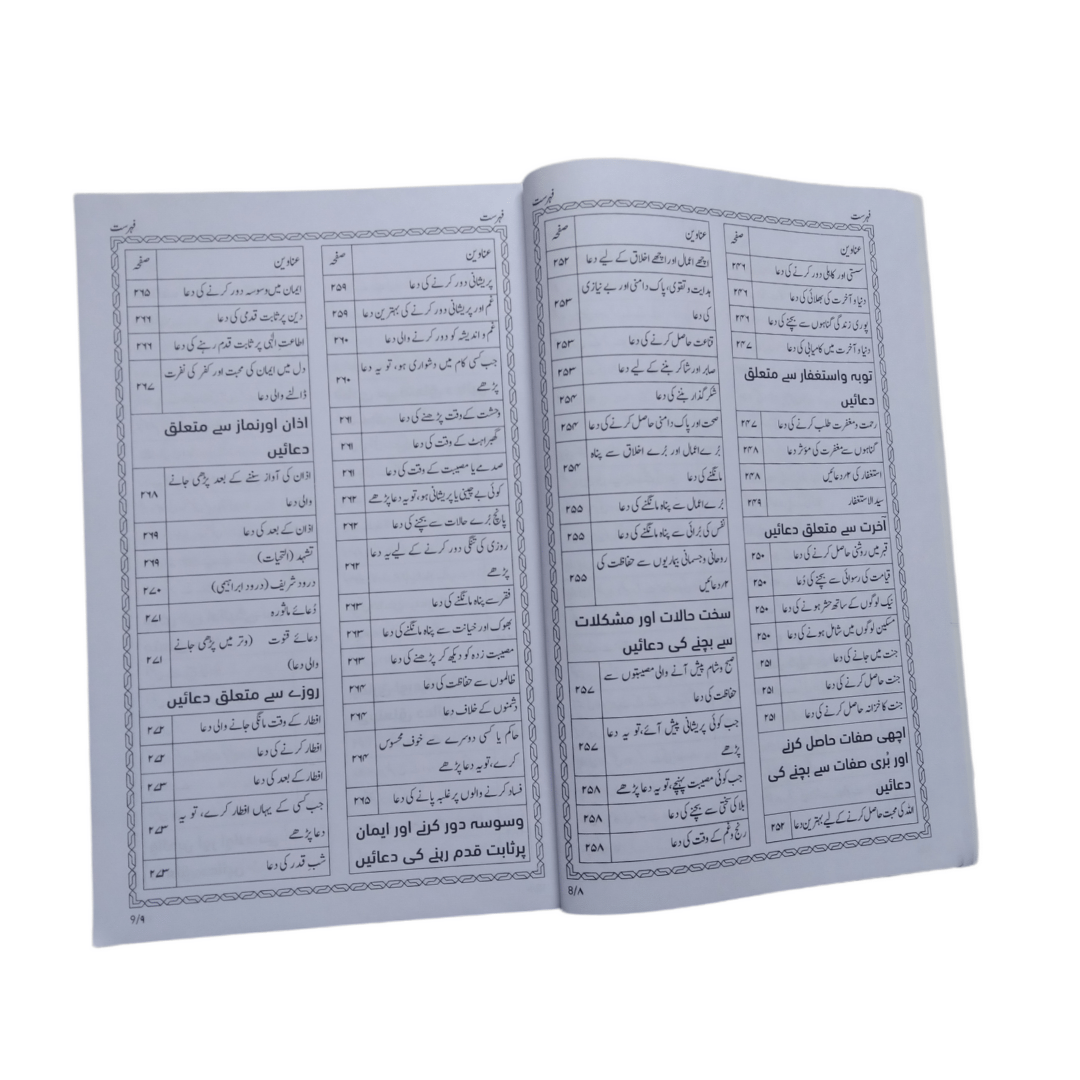 فہرست
عناوین صفحہ
سستی اور کاہلی دور کرنے کی دعا ۲۴۶
دنیا و آخرت کی بھلائی کی دعا ۲۴۶
پوری زندگی گناہوں سے بچنے کی دعا ۲۴۶
دنیا و آخرت میں کامیابی کی دعا ۲۴۷
توبہ واستغفار سے متعلق
دعائیں
رحمت ومغفرت طلب کرنے کی دعا ۲۴۷
گناہوں سے مغفرت کی مؤثر دعا ۲۴۸
استغفار کی ۲ دعائیں ۲۴۸
سیدالاستغفار ۲۴۹
آخرت سے متعلق دعائیں
قبر میں روشنی حاصل کرنے کی دعا ۲۵۰
قیامت کی رسوائی سے بچنے کی دُعا ۲۵۰
نیک لوگوں کے ساتھ حشر ہونے کی دعا ۲۵۰
مسکین لوگوں میں شامل ہونے کی دعا ۲۵۰
جنت میں جانے کی دعا ۲۵۱
جنت حاصل کرنے کی دعا ۲۵۱
جنت کا خزانہ حاصل کرنے کی دعا ۲۵۱
اچھی صفات حاصل کرنے
اور بُری صفات سے بچنے کی
دعائیں
اللہ کی محبت حاصل کرنے کے لیے بہترین دعا ۲۵۲
فہرست
عناوین صفحہ
اچھے اعمال اور اچھے اخلاق کے لیے دعا ۲۵۲
ہدایت و تقویٰ، پاک دامنی اور بے نیازی ۲۵۳
کی دعا
قناعت حاصل کرنے کی دعا ۲۵۳
صابر اور شاکر بننے کے لیے دعا ۲۵۳
شکر گذار بننے کی دعا ۲۵۴
صحت اور پاک دامنی حاصل کرنے کی دعا ۲۵۴
بُرے اعمال اور بُرے اخلاق سے پناہ ۲۵۴
مانگنے کی دعا
بُرے اعمال سے پناہ مانگنے کی دعا ۲۵۵
نفس کی بُرائی سے پناہ مانگنے کی دعا ۲۵۵
روحانی و جسمانی بیماریوں سے حفاظت کی ۲۵۵
۲ دعائیں
سخت حالات اور مشکلات
سے بچنے کی دعائیں
صبح وشام پیش آنے والی مصیبتوں سے ۲۵۷
حفاظت کی دعا
جب کوئی پریشانی پیش آئے، تو یہ دعا ۲۵۷
پڑھے
جب کوئی مصیبت پہنچے، تو یہ دعا پڑھے ۲۵۸
بلا کی سختی سے بچنے کی دعا ۲۵۸
رنج وغم کے وقت کی دعا ۲۵۸
8/۸
فہرست
عناوین صفحہ
پریشانی دور کرنے کی دعا ۲۵۹
غم اور پریشانی دور کرنے کی بہترین دعا ۲۵۹
غم و اندیشہ کو دور کرنے والی دعا ۲۶۰
جب کسی کام میں دشواری ہو، تو یہ دعا ۲۶۰
پڑھے
وحشت کے وقت پڑھنے کی دعا ۲۶۱
گھبراہٹ کے وقت کی دعا ۲۶۱
صدمے یا مصیبت کے وقت کی دعا ۲۶۱
کوئی بے چینی یا پریشانی ہو، تو یہ دعا پڑھے ۲۶۲
پانچ بُرے حالات سے بچنے کی دعا ۲۶۲
روزی کی تنگی دور کرنے کے لیے یہ دعا ۲۶۲
پڑھے
فقر سے پناہ مانگنے کی دعا ۲۶۳
بھوک اور خیانت سے پناہ مانگنے کی دعا ۲۶۳
مصیبت زدہ کو دیکھ کر پڑھنے کی دعا ۲۶۳
ظالموں سے حفاظت کی دعا ۲۶۴
دشمنوں کے خلاف دعا ۲۶۴
حاکم یا کسی دوسرے سے خوف محسوس ۲۶۴
کرے، تو یہ دعا پڑھے
فساد کرنے والوں پر غلبہ پانے کی دعا ۲۶۵
وسوسہ دور کرنے اور ایمان
پر ثابت قدم رہنے کی دعائیں
فہرست
عناوین صفحہ
ایمان میں وسوسہ دور کرنے کی دعا ۲۶۵
دین پر ثابت قدمی کی دعا ۲۶۶
اطاعتِ الٰہی پر ثابت قدم رہنے کی دعا ۲۶۶
دل میں ایمان کی محبت اور کفر کی نفرت ۲۶۷
ڈالنے والی دعا
اذان اور نماز سے متعلق
دعائیں
اذان کی آواز سننے کے بعد پڑھی جانے ۲۶۸
والی دعا
اذان کے بعد کی دعا ۲۶۹
تشہد (التحیات) ۲۶۹
درود شریف (درود ابراہیمی) ۲۷۰
دُعائے ماثورہ ۲۷۱
دعائے قنوت (وتر میں پڑھی جانے ۲۷۱
والی دعا)
روزے سے متعلق دعائیں
افطار کے وقت مانگی جانے والی دعا ۲۷۲
افطار کرنے کی دعا ۲۷۲
افطار کے بعد کی دعا ۲۷۳
جب کسی کے یہاں افطار کرے، تو یہ ۲۷۳
دعا پڑھے
شبِ قدر کی دعا ۲۷۳
9/۹